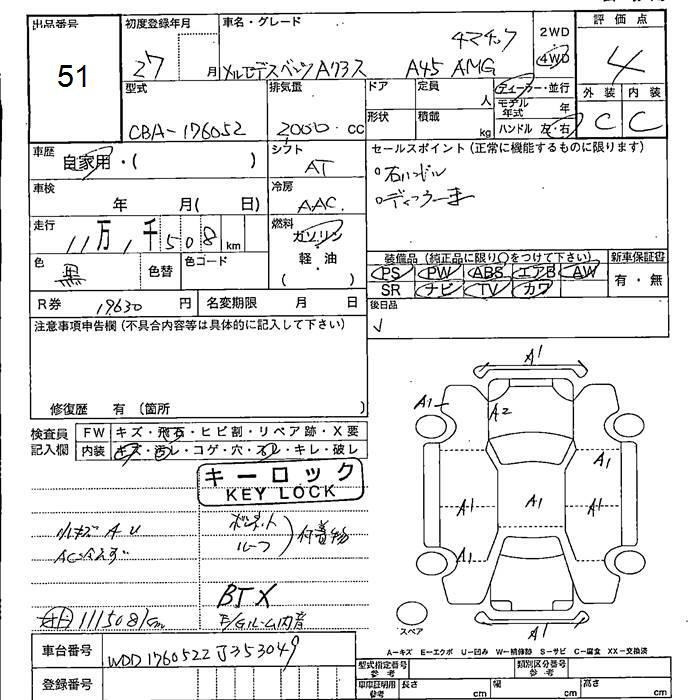 出品番号
51
初度登録年月
27 月
車名・グレード
4マチック
メルセデスベンツ Aクラス A45 AMG
2WD
4WD
評価点
4
外装 内装
C C
型式
CBA-176052
排気量
2000 cc
ドア
定員
人
形状
積載
kg
ディーラー・並行
モデル年式 年
ハンドル 左・右
車歴
自家用・( )
シフト
AT
車検
年 月( 日)
冷房
AAC
走行
11万1千508 km
燃料
ガソリン
軽・油
( )
色
黒
色替
色コード
R券 17630 円
名変期限 月 日
セールスポイント(正常に機能するものに限ります)
右ハンドル
ディーラー車
装備品(純正品に限り○をつけて下さい)
PS PW ABS エアB AW
SR ナビ TV カワ
新車保証書
有・無
後日品
注意事項申告欄(不具合内容等は具体的に記入して下さい)
修復歴 有 (箇所 )
検査員記入欄
FW キズ・飛石・ヒビ割・リペア跡・X要
内装 キズ・汚レ・コゲ・穴・スレ・キレ・破レ
キーロック
KEY LOCK
小キズ A U
AC冷えず
ボンネット
ルーフ
付着物
BTX
E/Gルーム内音
111508km
A1
A1
A2
A1
A1
A1
A1
A1
A1
スペア
A-キズ E-エクボ U-凹み W-補修跡 S-サビ C-腐食 XX-交換済
車台番号
WDD1760522J353049
登録番号
型式指定番号
参考
類別区分番号
参考
車車証明用
参考
長さ cm
幅 cm
高さ cm